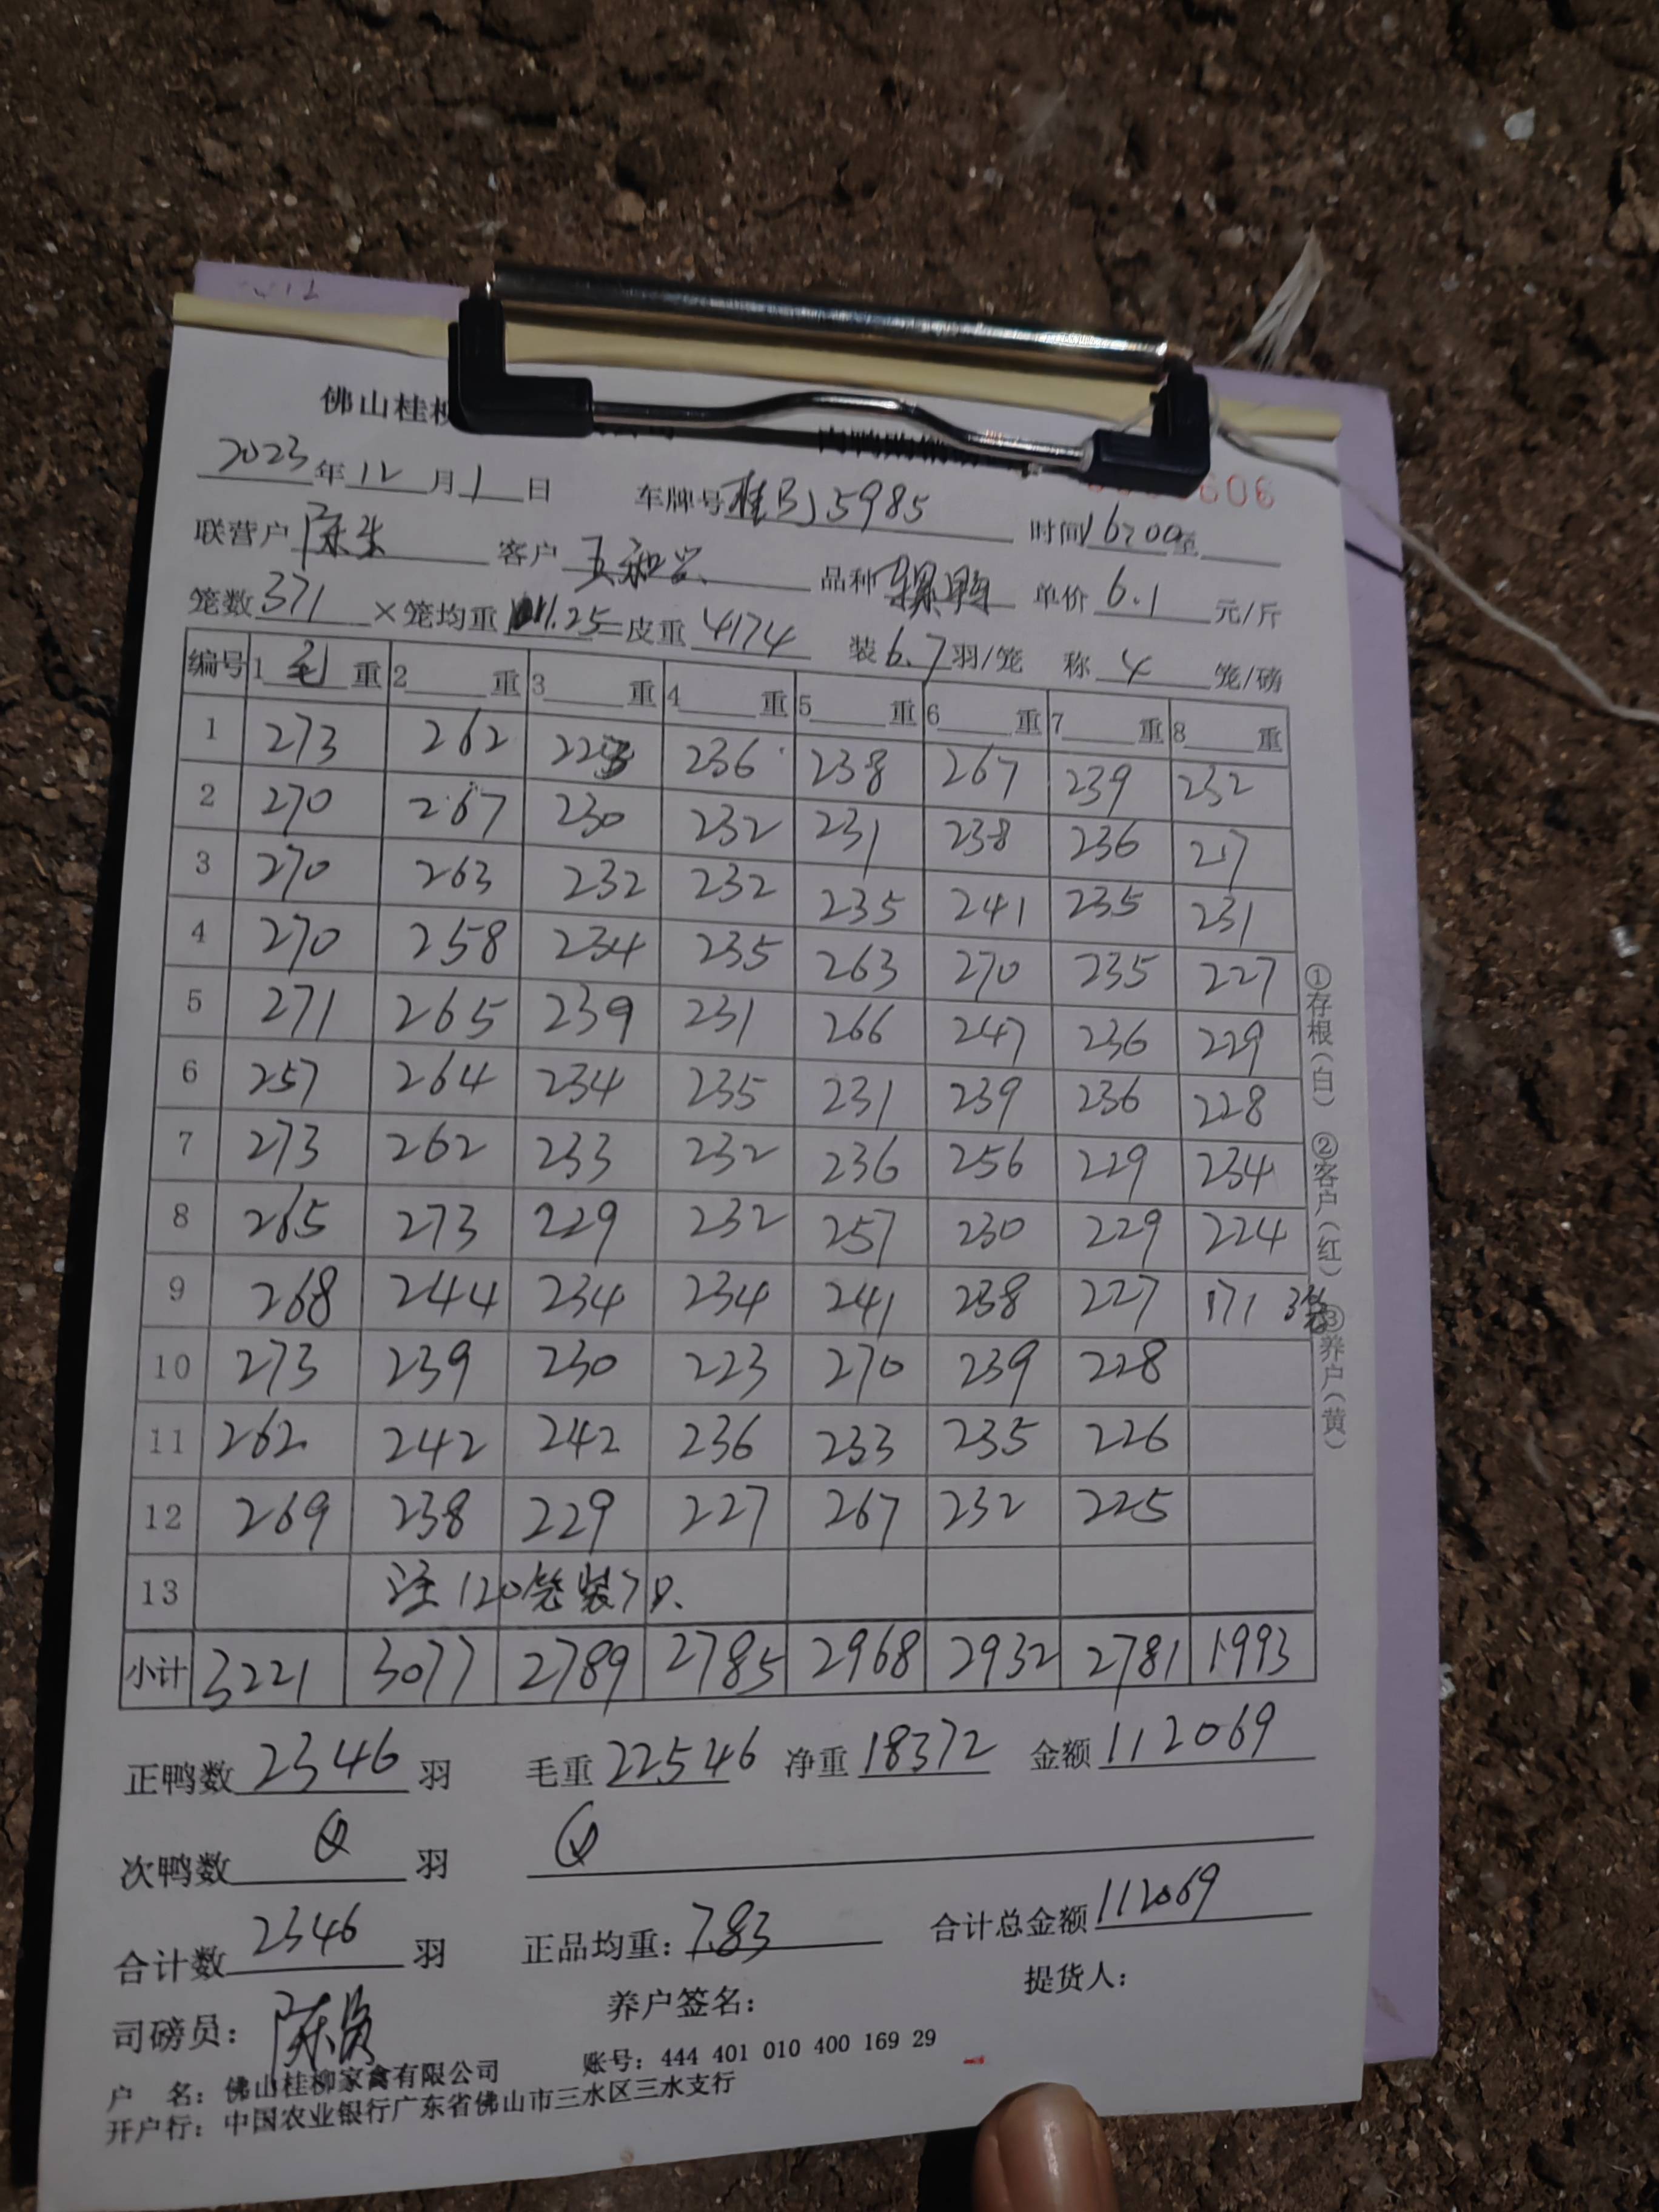 佛山桂柳
2023年12月1日 车牌号桂BJ5985 时间16:00至
联营户 陈生 客户 王和兴 品种 单价6.1元/斤
笼数371×笼均重11.25=皮重4174 装6.7羽/笼 称4笼/磅
编号 1毛重 2重 3重 4重 5重 6重 7重 8重
1 273 262 223 236 238 267 239 232
2 270 267 230 232 231 238 236 217
3 270 263 232 232 235 241 235 231
4 270 258 234 235 263 270 235 227
5 271 265 239 231 266 247 236 229
6 257 264 234 235 231 239 236 228
7 273 262 233 232 236 256 229 234
8 265 273 229 232 257 230 229 224
9 268 244 234 234 241 238 227 171 3笼
10 273 239 230 223 270 239 228
11 262 242 242 236 233 235 226
12 269 238 229 227 267 232 225
13 注120笼装7只.
小计 3221 3077 2789 2785 2968 2932 2781 1993
①存根(白) ②客户(红) ③养户(黄)
正鸭数2346羽 毛重22546 净重18372 金额112069
次鸭数 0 羽 0
合计数2346羽 正品均重：7.83 合计总金额112069
司磅员： 养户签名： 提货人：
户 名：佛山桂柳家禽有限公司 账号：444 401 010 400 169 29
开户行：中国农业银行广东省佛山市三水区三水支行